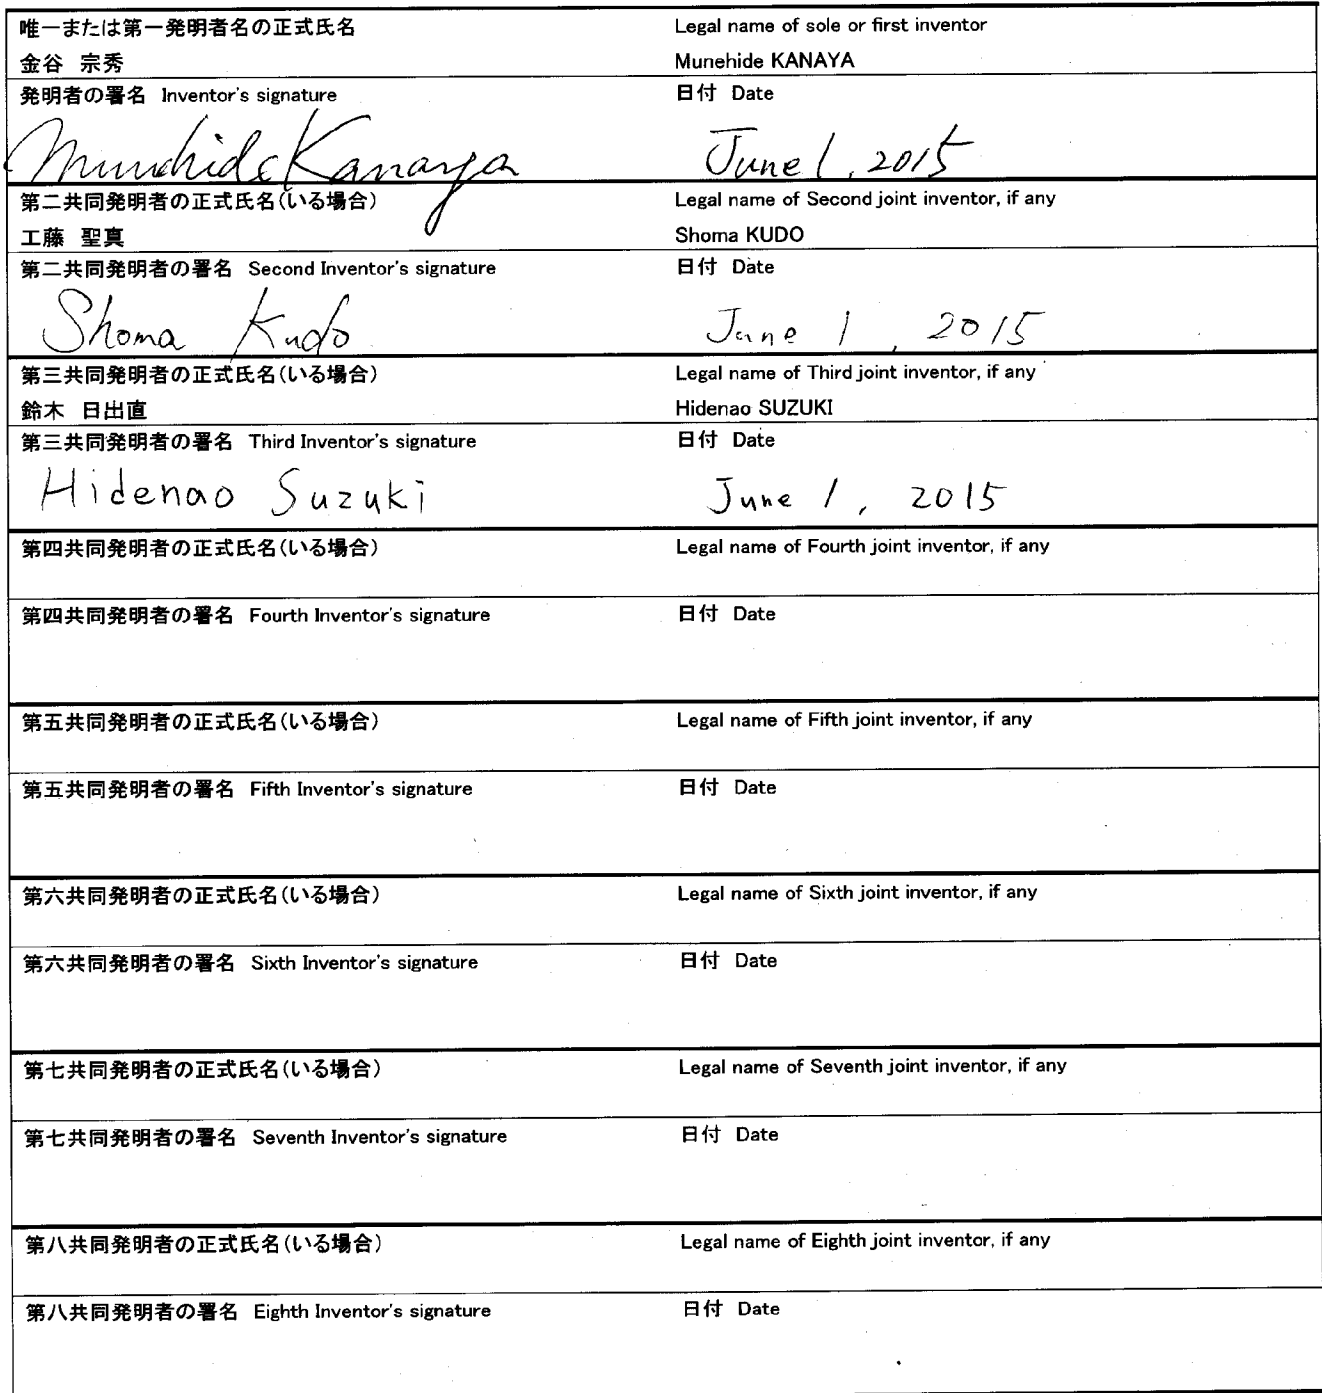 唯一または第一発明者名の正式氏名 Legal name of sole or first inventor
金谷 宗秀 Munehide KANAYA
発明者の署名 Inventor's signature 日付 Date
Munehide Kanaya June 1, 2015
第二共同発明者の正式氏名(いる場合) Legal name of Second joint inventor, if any
工藤 聖真 Shoma KUDO
第二共同発明者の署名 Second Inventor's signature 日付 Date
Shoma Kudo June 1, 2015
第三共同発明者の正式氏名(いる場合) Legal name of Third joint inventor, if any
鈴木 日出直 Hidenao SUZUKI
第三共同発明者の署名 Third Inventor's signature 日付 Date
Hidenao Suzuki June 1, 2015
第四共同発明者の正式氏名(いる場合) Legal name of Fourth joint inventor, if any
第四共同発明者の署名 Fourth Inventor's signature 日付 Date
第五共同発明者の正式氏名(いる場合) Legal name of Fifth joint inventor, if any
第五共同発明者の署名 Fifth Inventor's signature 日付 Date
第六共同発明者の正式氏名(いる場合) Legal name of Sixth joint inventor, if any
第六共同発明者の署名 Sixth Inventor's signature 日付 Date
第七共同発明者の正式氏名(いる場合) Legal name of Seventh joint inventor, if any
第七共同発明者の署名 Seventh Inventor's signature 日付 Date
第八共同発明者の正式氏名(いる場合) Legal name of Eighth joint inventor, if any
第八共同発明者の署名 Eighth Inventor's signature 日付 Date